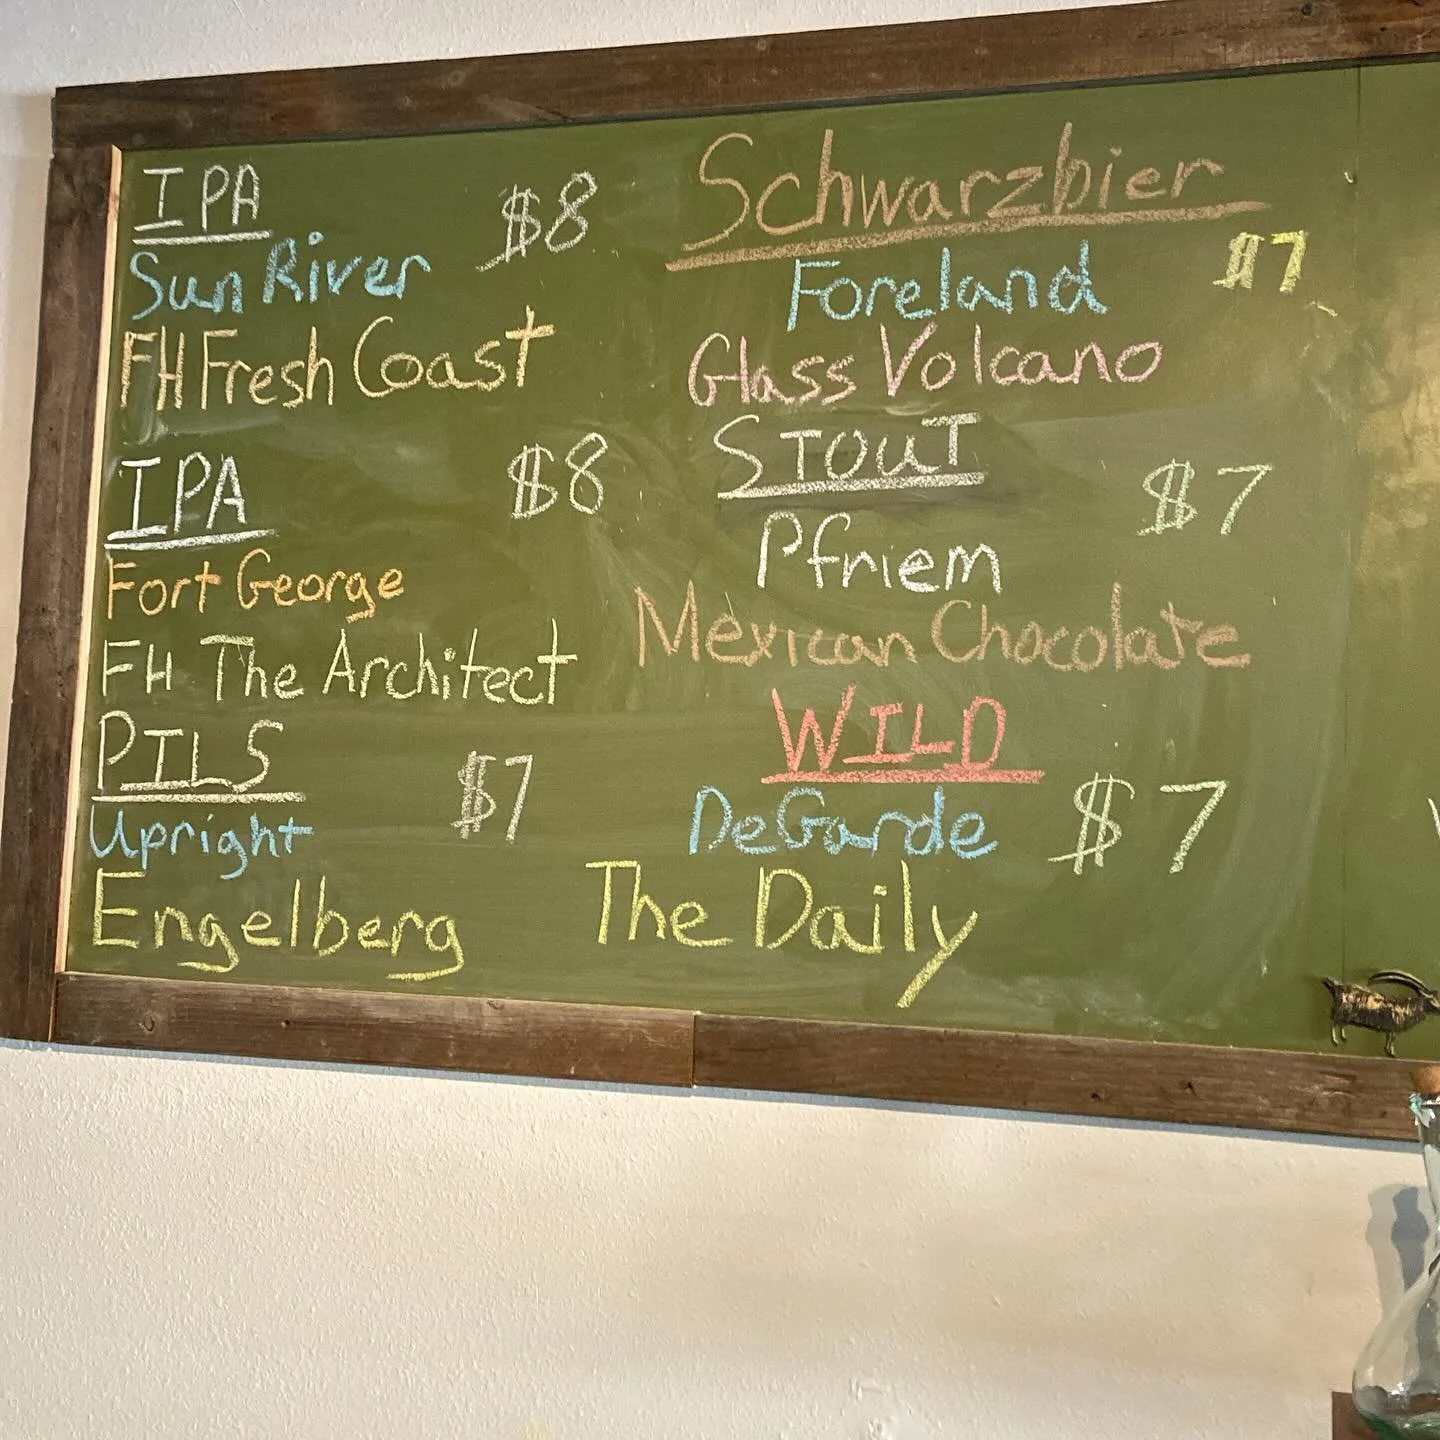 IPA $8
Sun River
FH Fresh Coast
IPA $8
Fort George
FH The Architect
PILS $7
Upright
Engelberg
Schwarzbier
Foreland $7
Glass Volcano
STOUT $7
Pfriem
Mexican Chocolate
WILD
DeGarde $7
The Daily